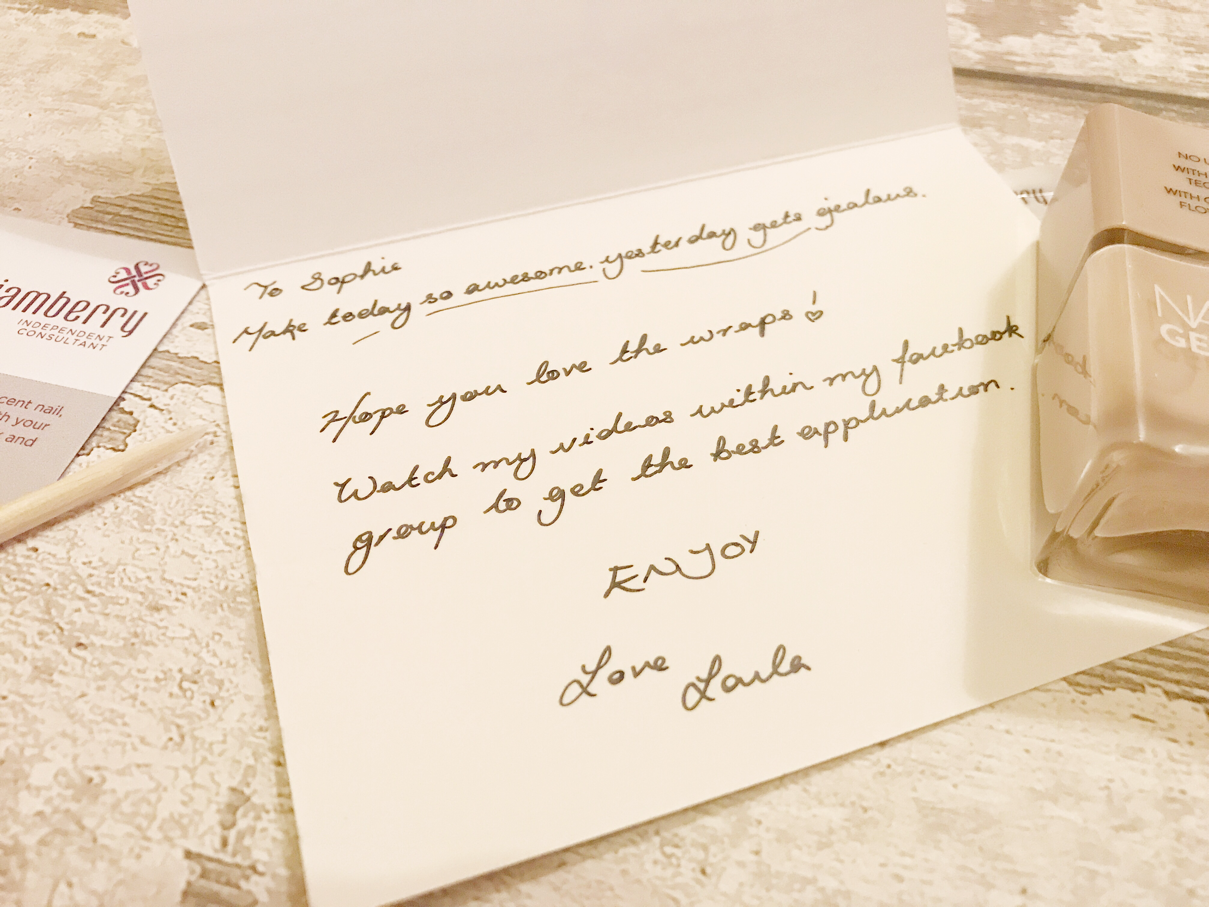 To Sophie
Make today so awesome. yesterday gets jealous.
Hope you love the wraps!
Watch my videos within my facebook
group to get the best application.
ENJOY
Love
jamberry
INDEPENDENT
CONSULTANT
cent nail,
th your
and
NO
WITH
TEC
WITH
FLO
NA
GE